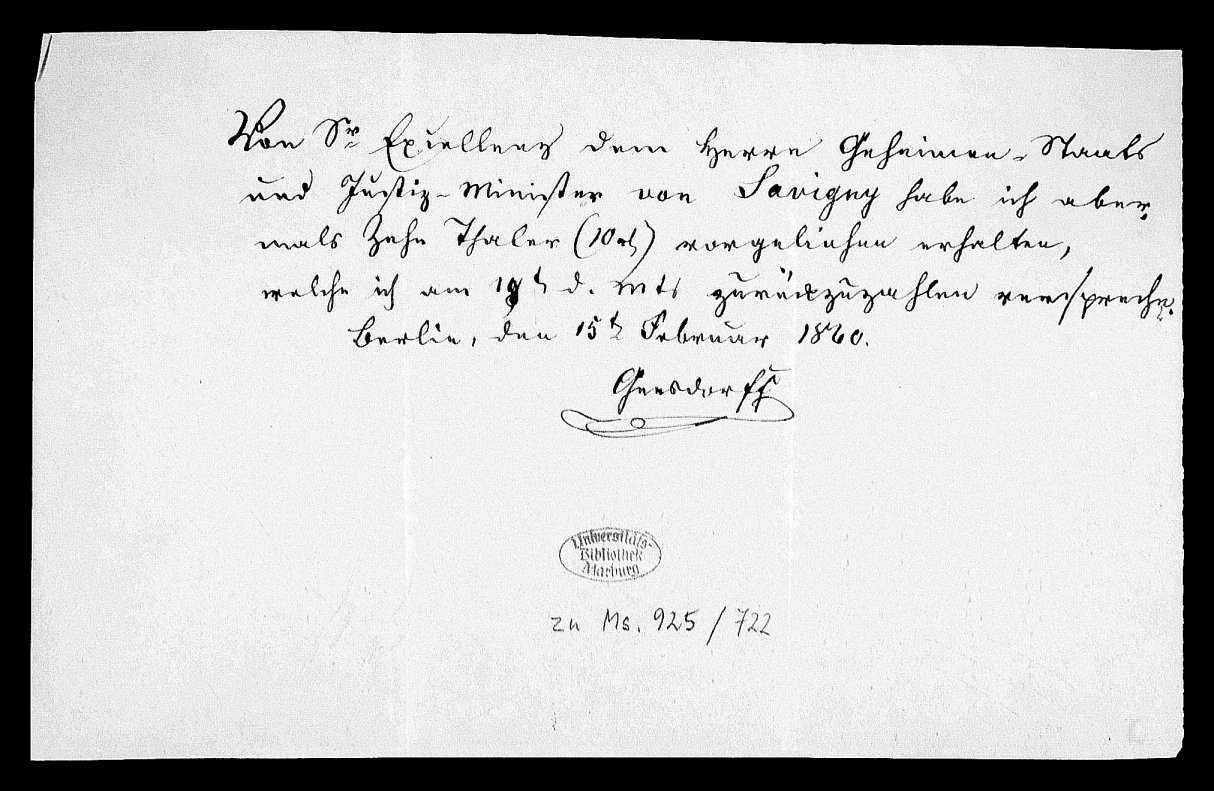 Von Sr Excellenz dem Herrn Geheimen-Staats
und Justiz-Minister von Savigny habe ich aber-
mals Zehn Thaler (10 rt) vorgeliehen erhalten,
welche ich am 19t d. Mts zurückzuzahlen verspreche.
Berlin, den 15t Februar 1860.
Gersdorff
Universitäts-
Bibliothek
Marburg
zu Ms. 925/722